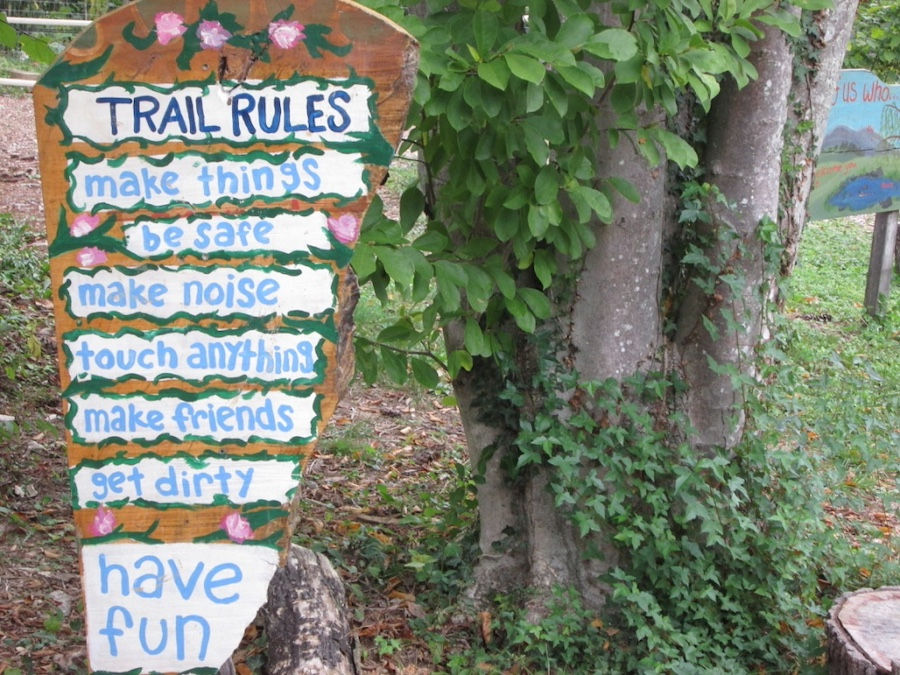 TRAIL RULES
make things
be safe
make noise
touch anything
make friends
get dirty
have
fun
us who